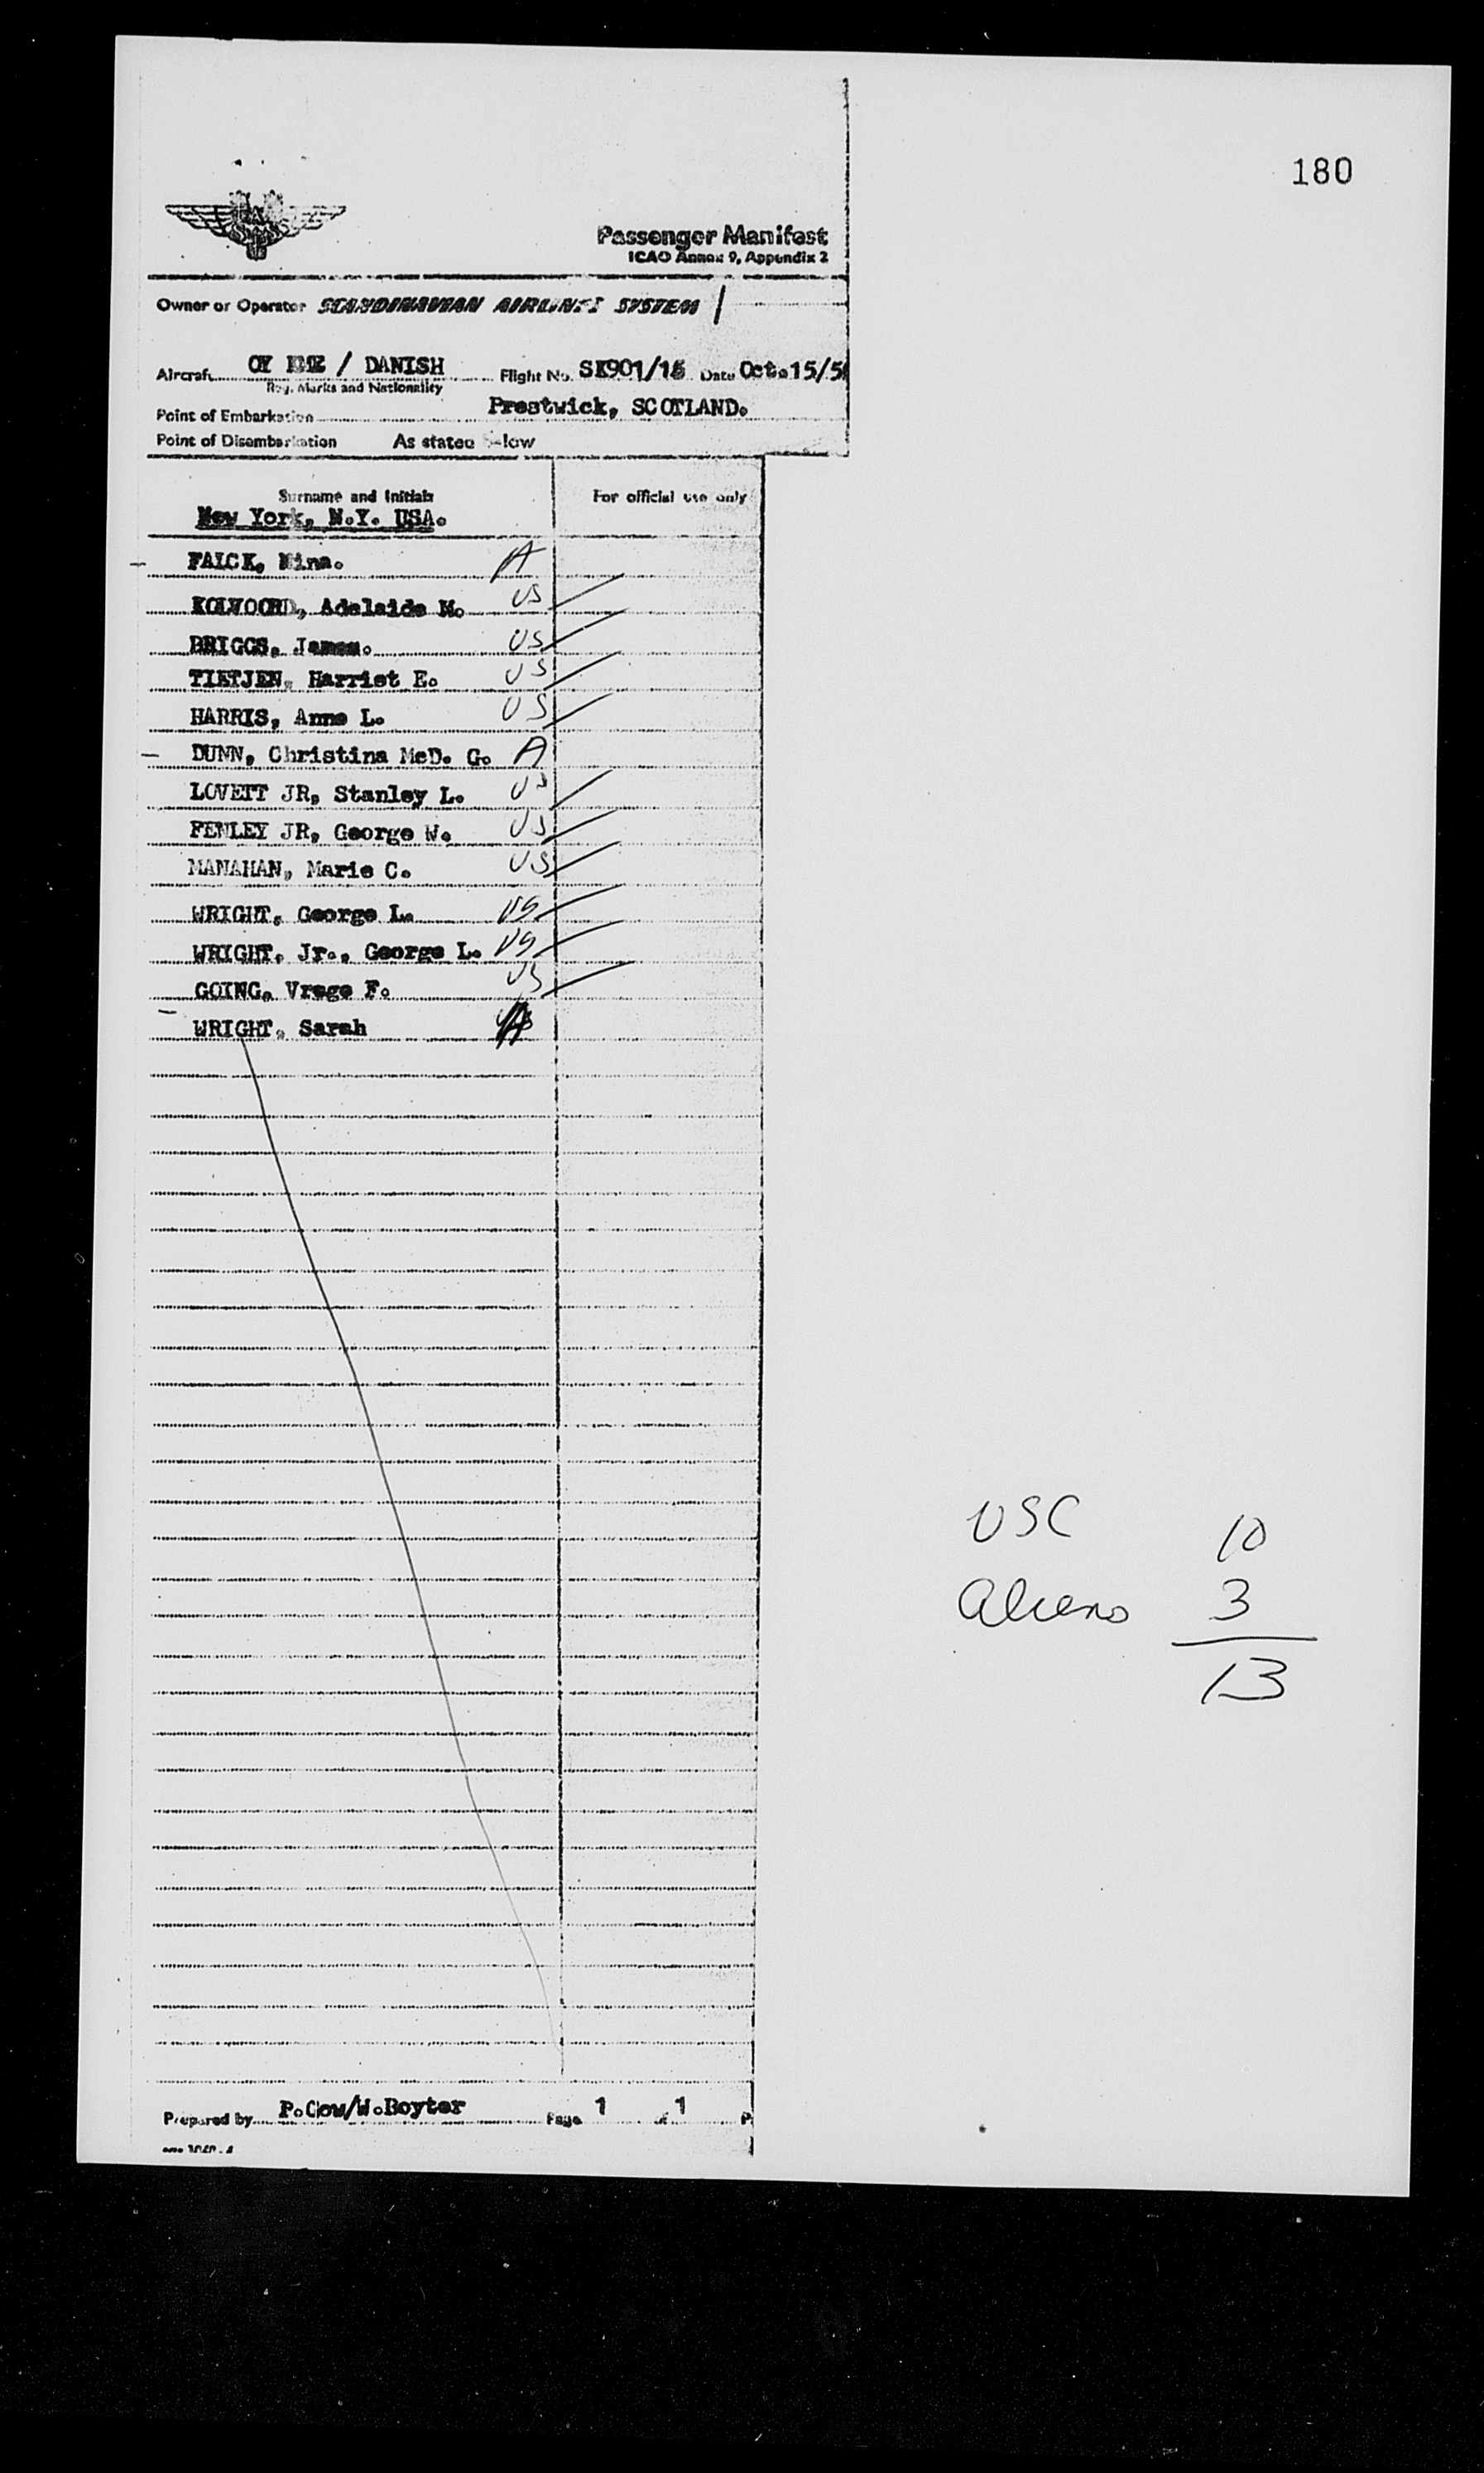 180
Passenger Manifest
ICAO Annex 9, Appendix 2
Owner or Operator SCANDINAVIAN AIRLINES SYSTEM
Aircraft OY / DANISH Flight No. SK901/15 Date Oct.15/5
Reg. Marks and Nationality
Point of Embarkation Prestwick, SCOTLAND.
Point of Disembarkation As stated below
Surname and Initials For official use only
New York, N.Y. USA.
FALCK, Nina. A
Adelaide M. US
BRIGGS, James. US
TIETJEN, Harriet E. US
HARRIS, Anne L. US
DUNN, Christina McD. G. A
LOVETT JR, Stanley L. US
FENLEY JR, George W. US
MANAHAN, Marie C. US
WRIGHT, George L. US
WRIGHT, Jr., George L. US
GOING, Vrege F. US
WRIGHT, Sarah A
USC 10
Aliens 3
13
Prepared by P.Gow/W.Boyter Page 1 of 1 P